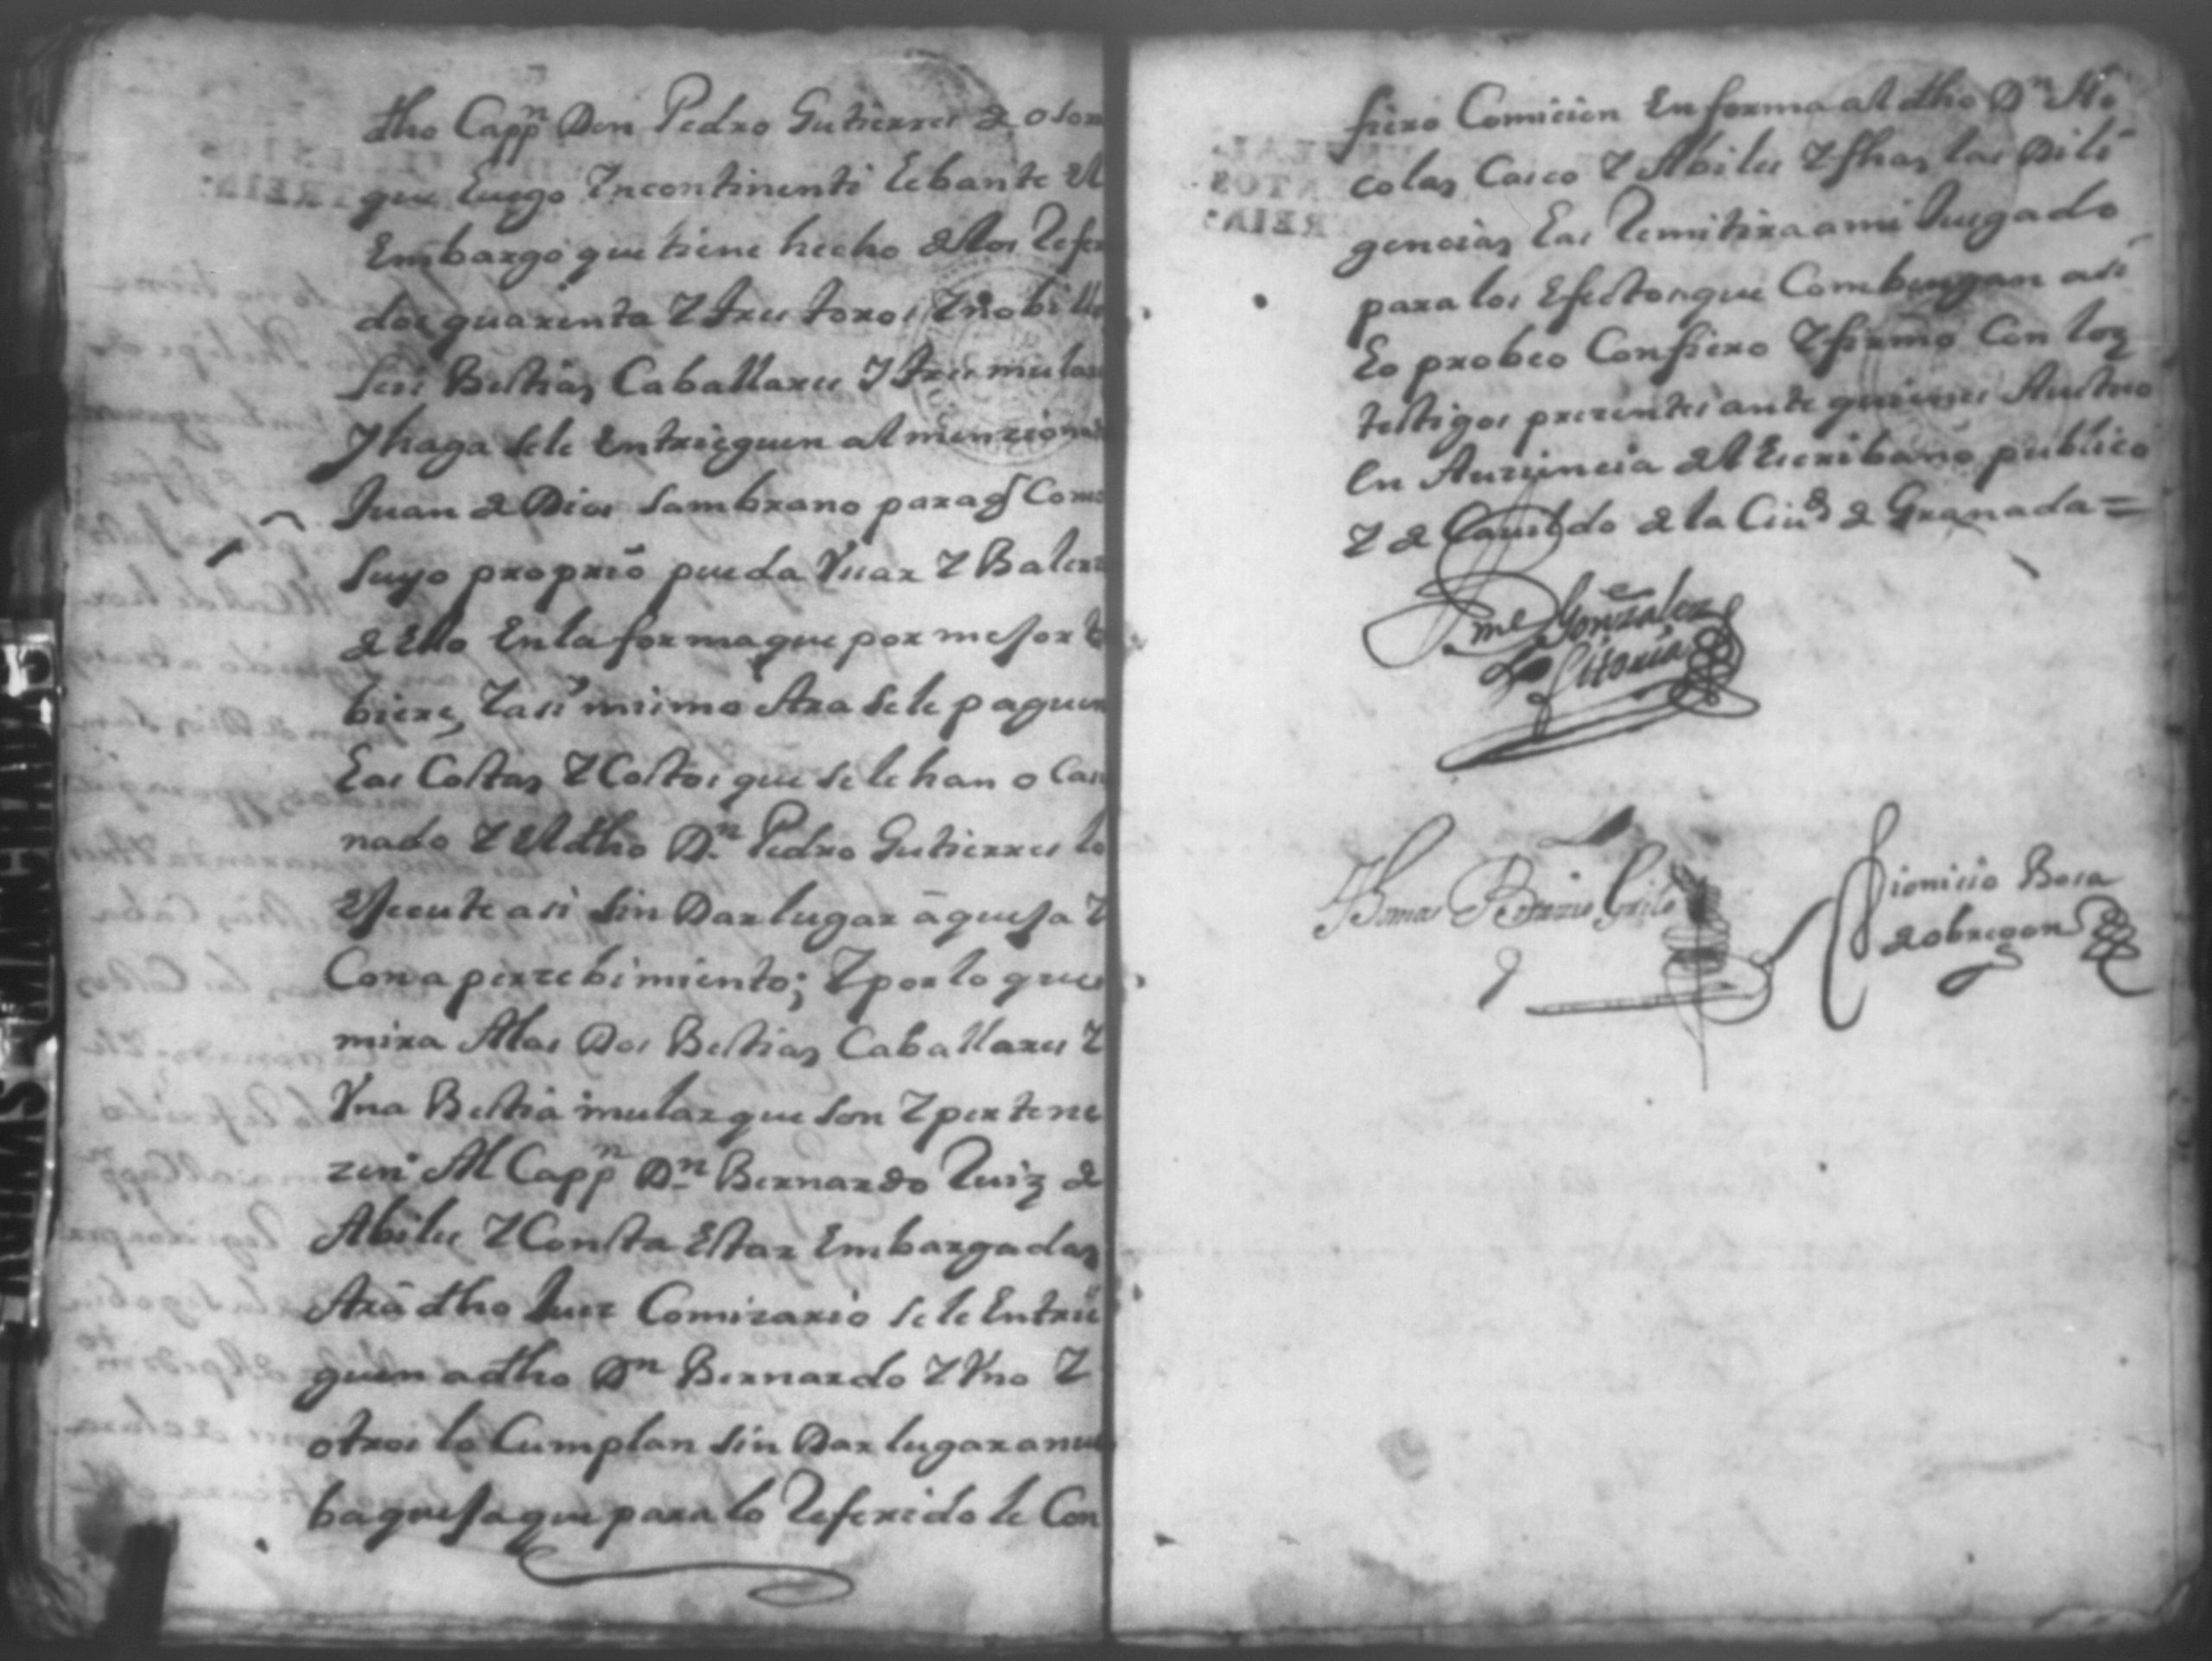 dho Cappn Don Pedro Gutierres de osor
que luego Yncontinenti lebante el
Embargo que tiene hecho de los Refer
dos quarenta Y tres toros Y nobillo
seis Bestias Caballares Y tres mulare
Y haga sele Entrieguen al menziona
Juan de Dios Sambrano para q Como
suyo proprio pueda Vsar Y Balers
de Ello En la forma que por mejor tu
biere, Y asi mismo Ara se le paguen
las Costas Y Costos que se le han o Casi
nado Y el dho Dn Pedro Gutierres lo
ejecute asi sin Dar lugar a queja Y
Con apersebimiento; Y por lo que
mira A las Dos Bestias Caballares Y
Vna Bestia mular que son Y pertene
zen Al Cappn Dn Bernardo Ruiz de
Abiles Y Consta Estar Embargadas
Ara dho Juez Comizario se le Entrie
guen a dho Dn Bernardo Y Vno Y
otros lo Cumplan sin Dar lugar a nue
ba queja que para lo Referido le Con
fiero Comicion En forma al dho Dn Ni
colas Casco Y Abiles Y fhas las Dili
gencias las Remitira a mi Jusgado
para los Efectos que Combengan asi
lo probeo Confiero Y firmo Con los
testigos prezentes ante quienes Actuo
en Auzencia del Escribano publico
Y de Cavildo de la Ciud de Granada =
Gonzalez
Dionicio Bosa
de obregon